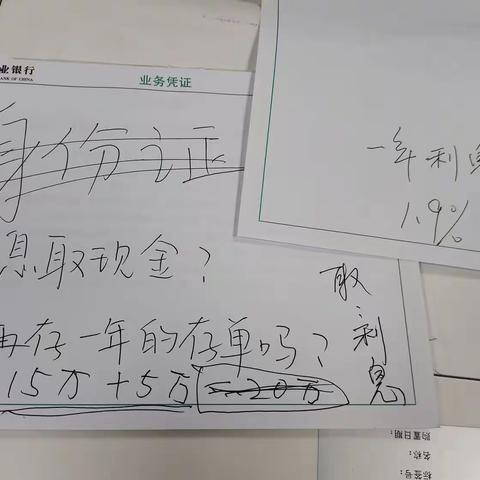 业银行
BANK OF CHINA
业务凭证
身份证
息取现金？
再存一年的存单吗？
15万+5万=20万
取利息
一年利息
1.9%
购置日期：
名称：
标签号：